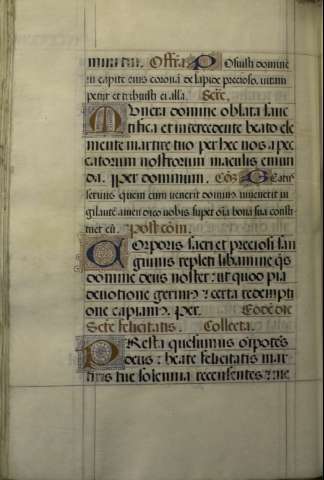 mini tui. Offra. Posuisti domine
in capite eius coronã de lapide precioso. vitam
petiit et tribuisti ei alla. Secre.
Munera domine oblata sanc
tifica et intercedente beato cle
mente martire tuo per hec nos a pec
catorum nostrorum maculis emun
da. Per dominum. Cõ. Beatus
servus quem cum venerit dominus invenerit vi
gilantẽ amen dico vobis super oĩa bona sua consti
tuet eũ. Post cõm.
Corporis sacri et preciosi san
guinis repleti libamine q̃s
domine deus noster: ut quod pia
devotione gerimus certa redempti
one capiamus. Per. Eodẽ die
Scte felicitatis. Collecta.
Presta quesumus omnipotẽs
deus: beate felicitatis mar
tiris tue solennia recensentes: me